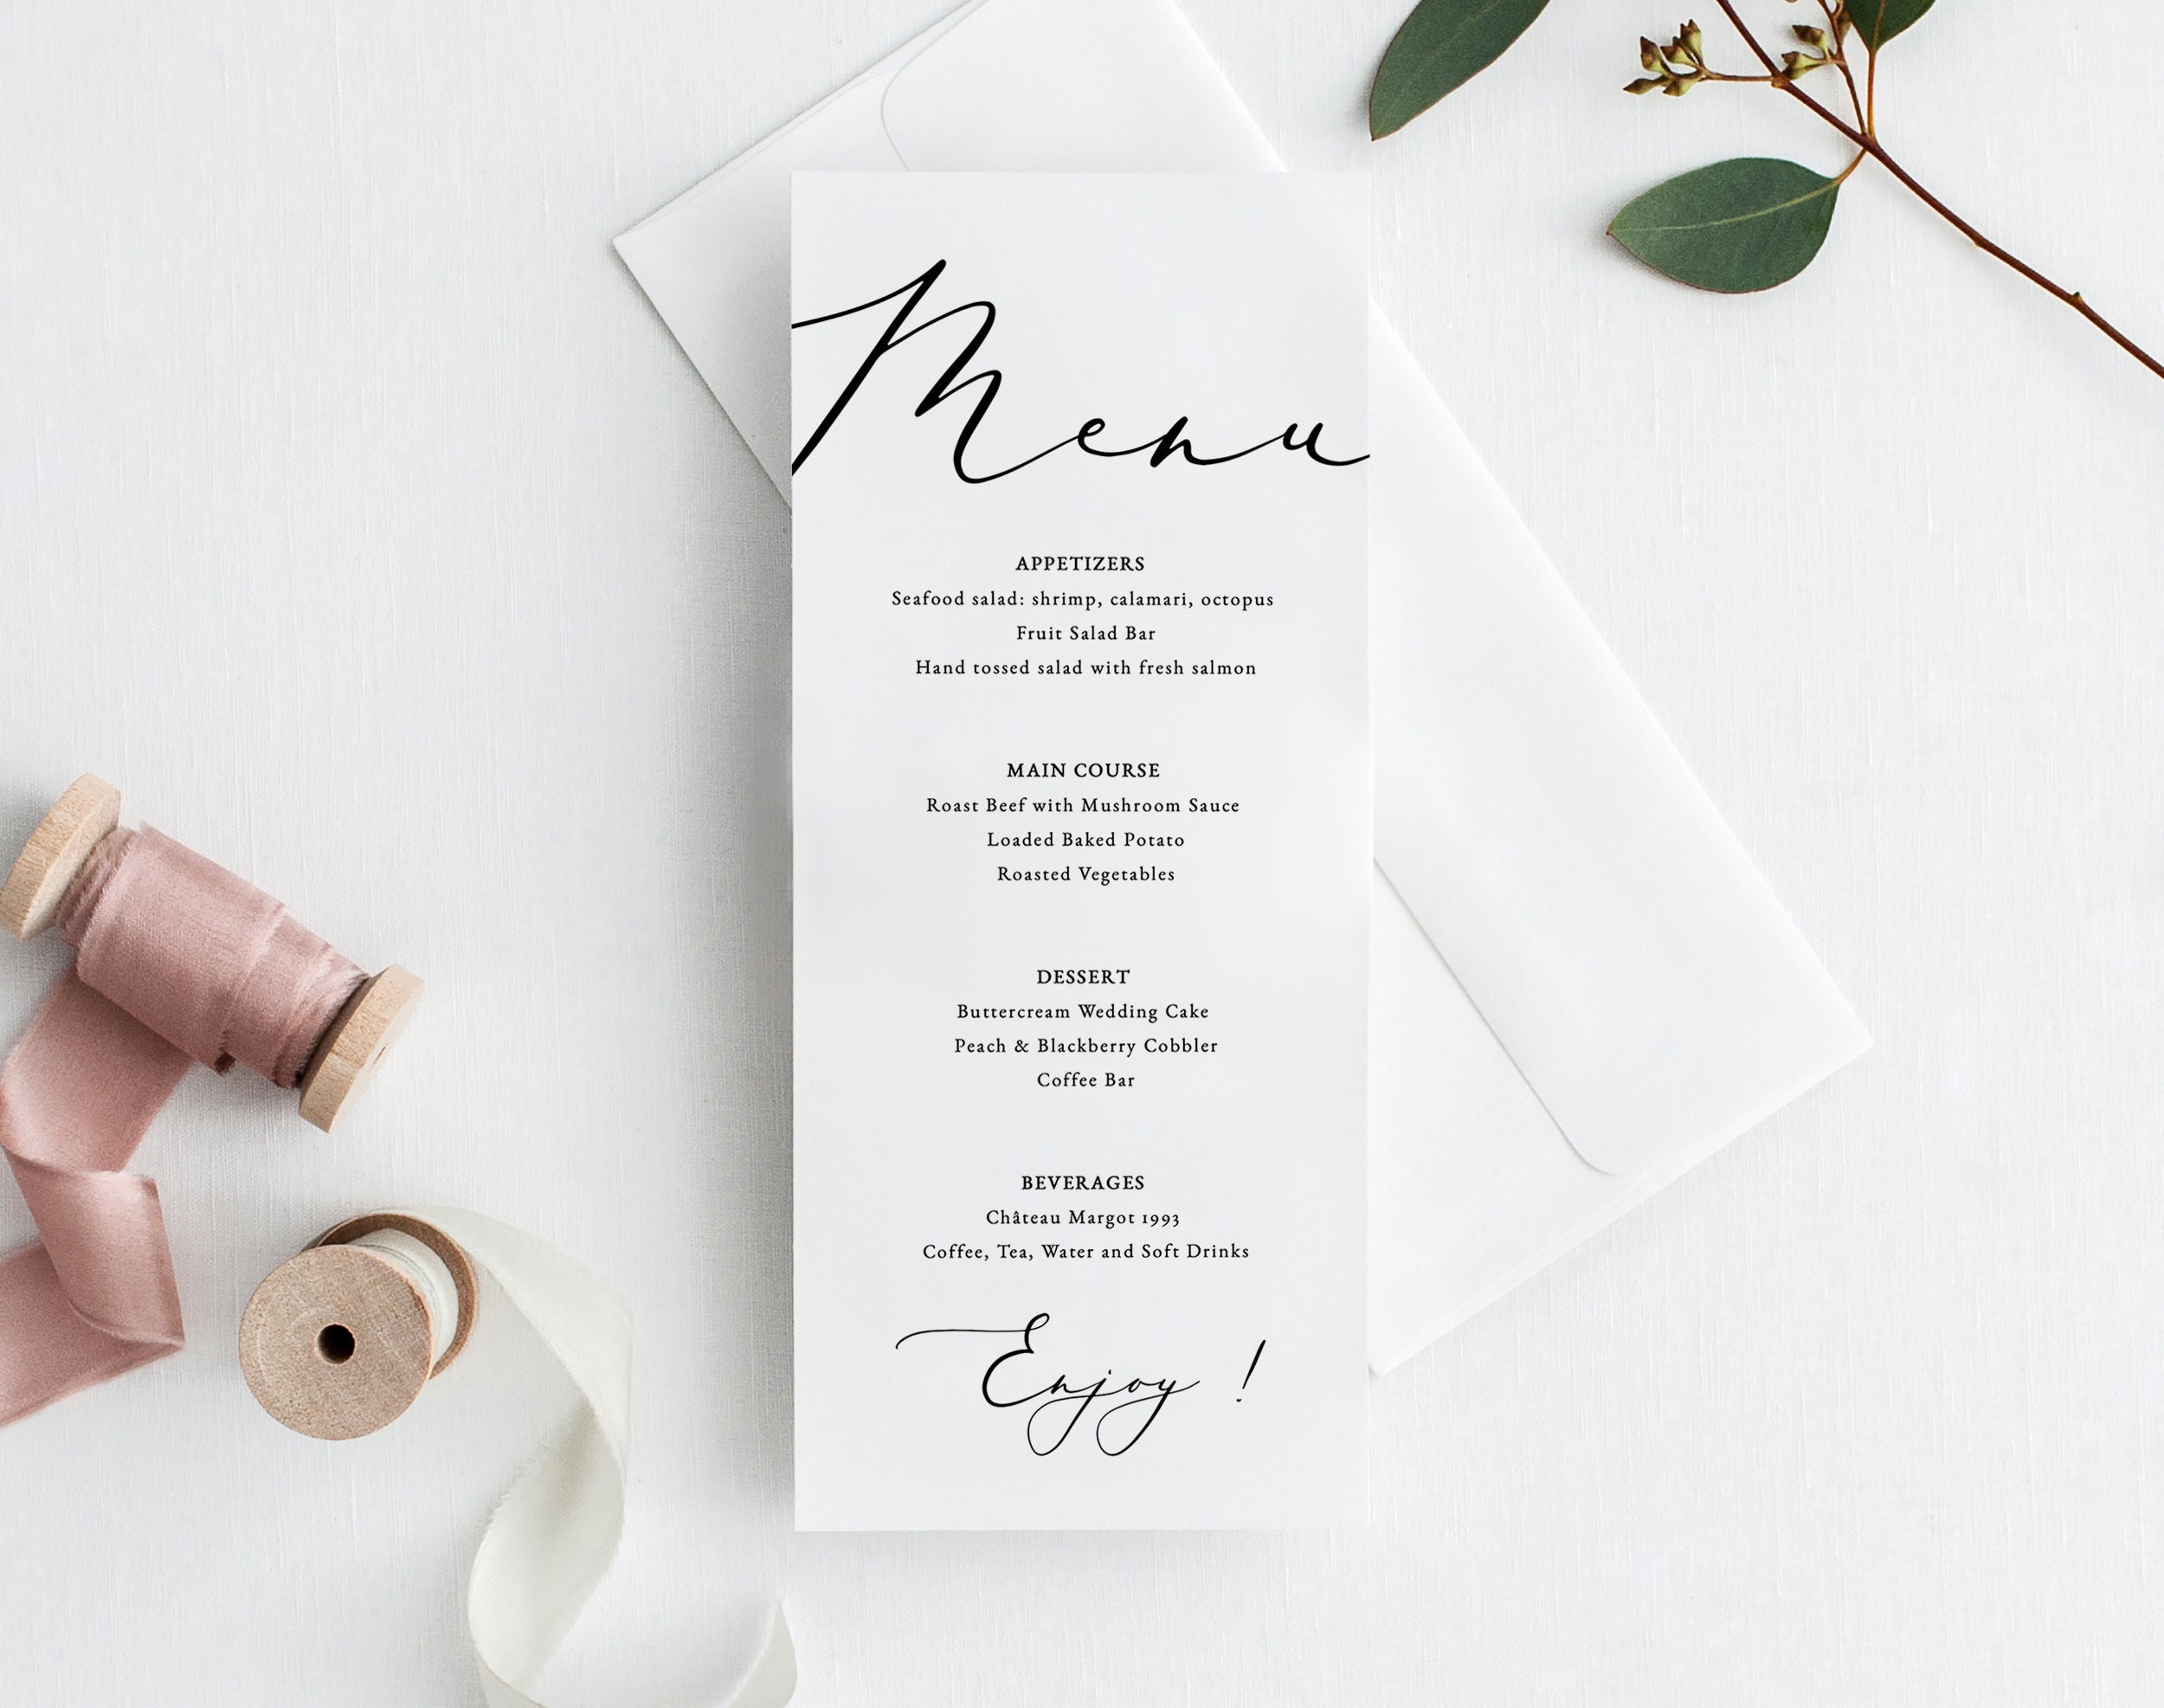 Menu
APPETIZERS
Seafood salad: shrimp, calamari, octopus
Fruit Salad Bar
Hand tossed salad with fresh salmon
MAIN COURSE
Roast Beef with Mushroom Sauce
Loaded Baked Potato
Roasted Vegetables
DESSERT
Buttercream Wedding Cake
Peach & Blackberry Cobbler
Coffee Bar
BEVERAGES
Château Margot 1993
Coffee, Tea, Water and Soft Drinks
Enjoy !